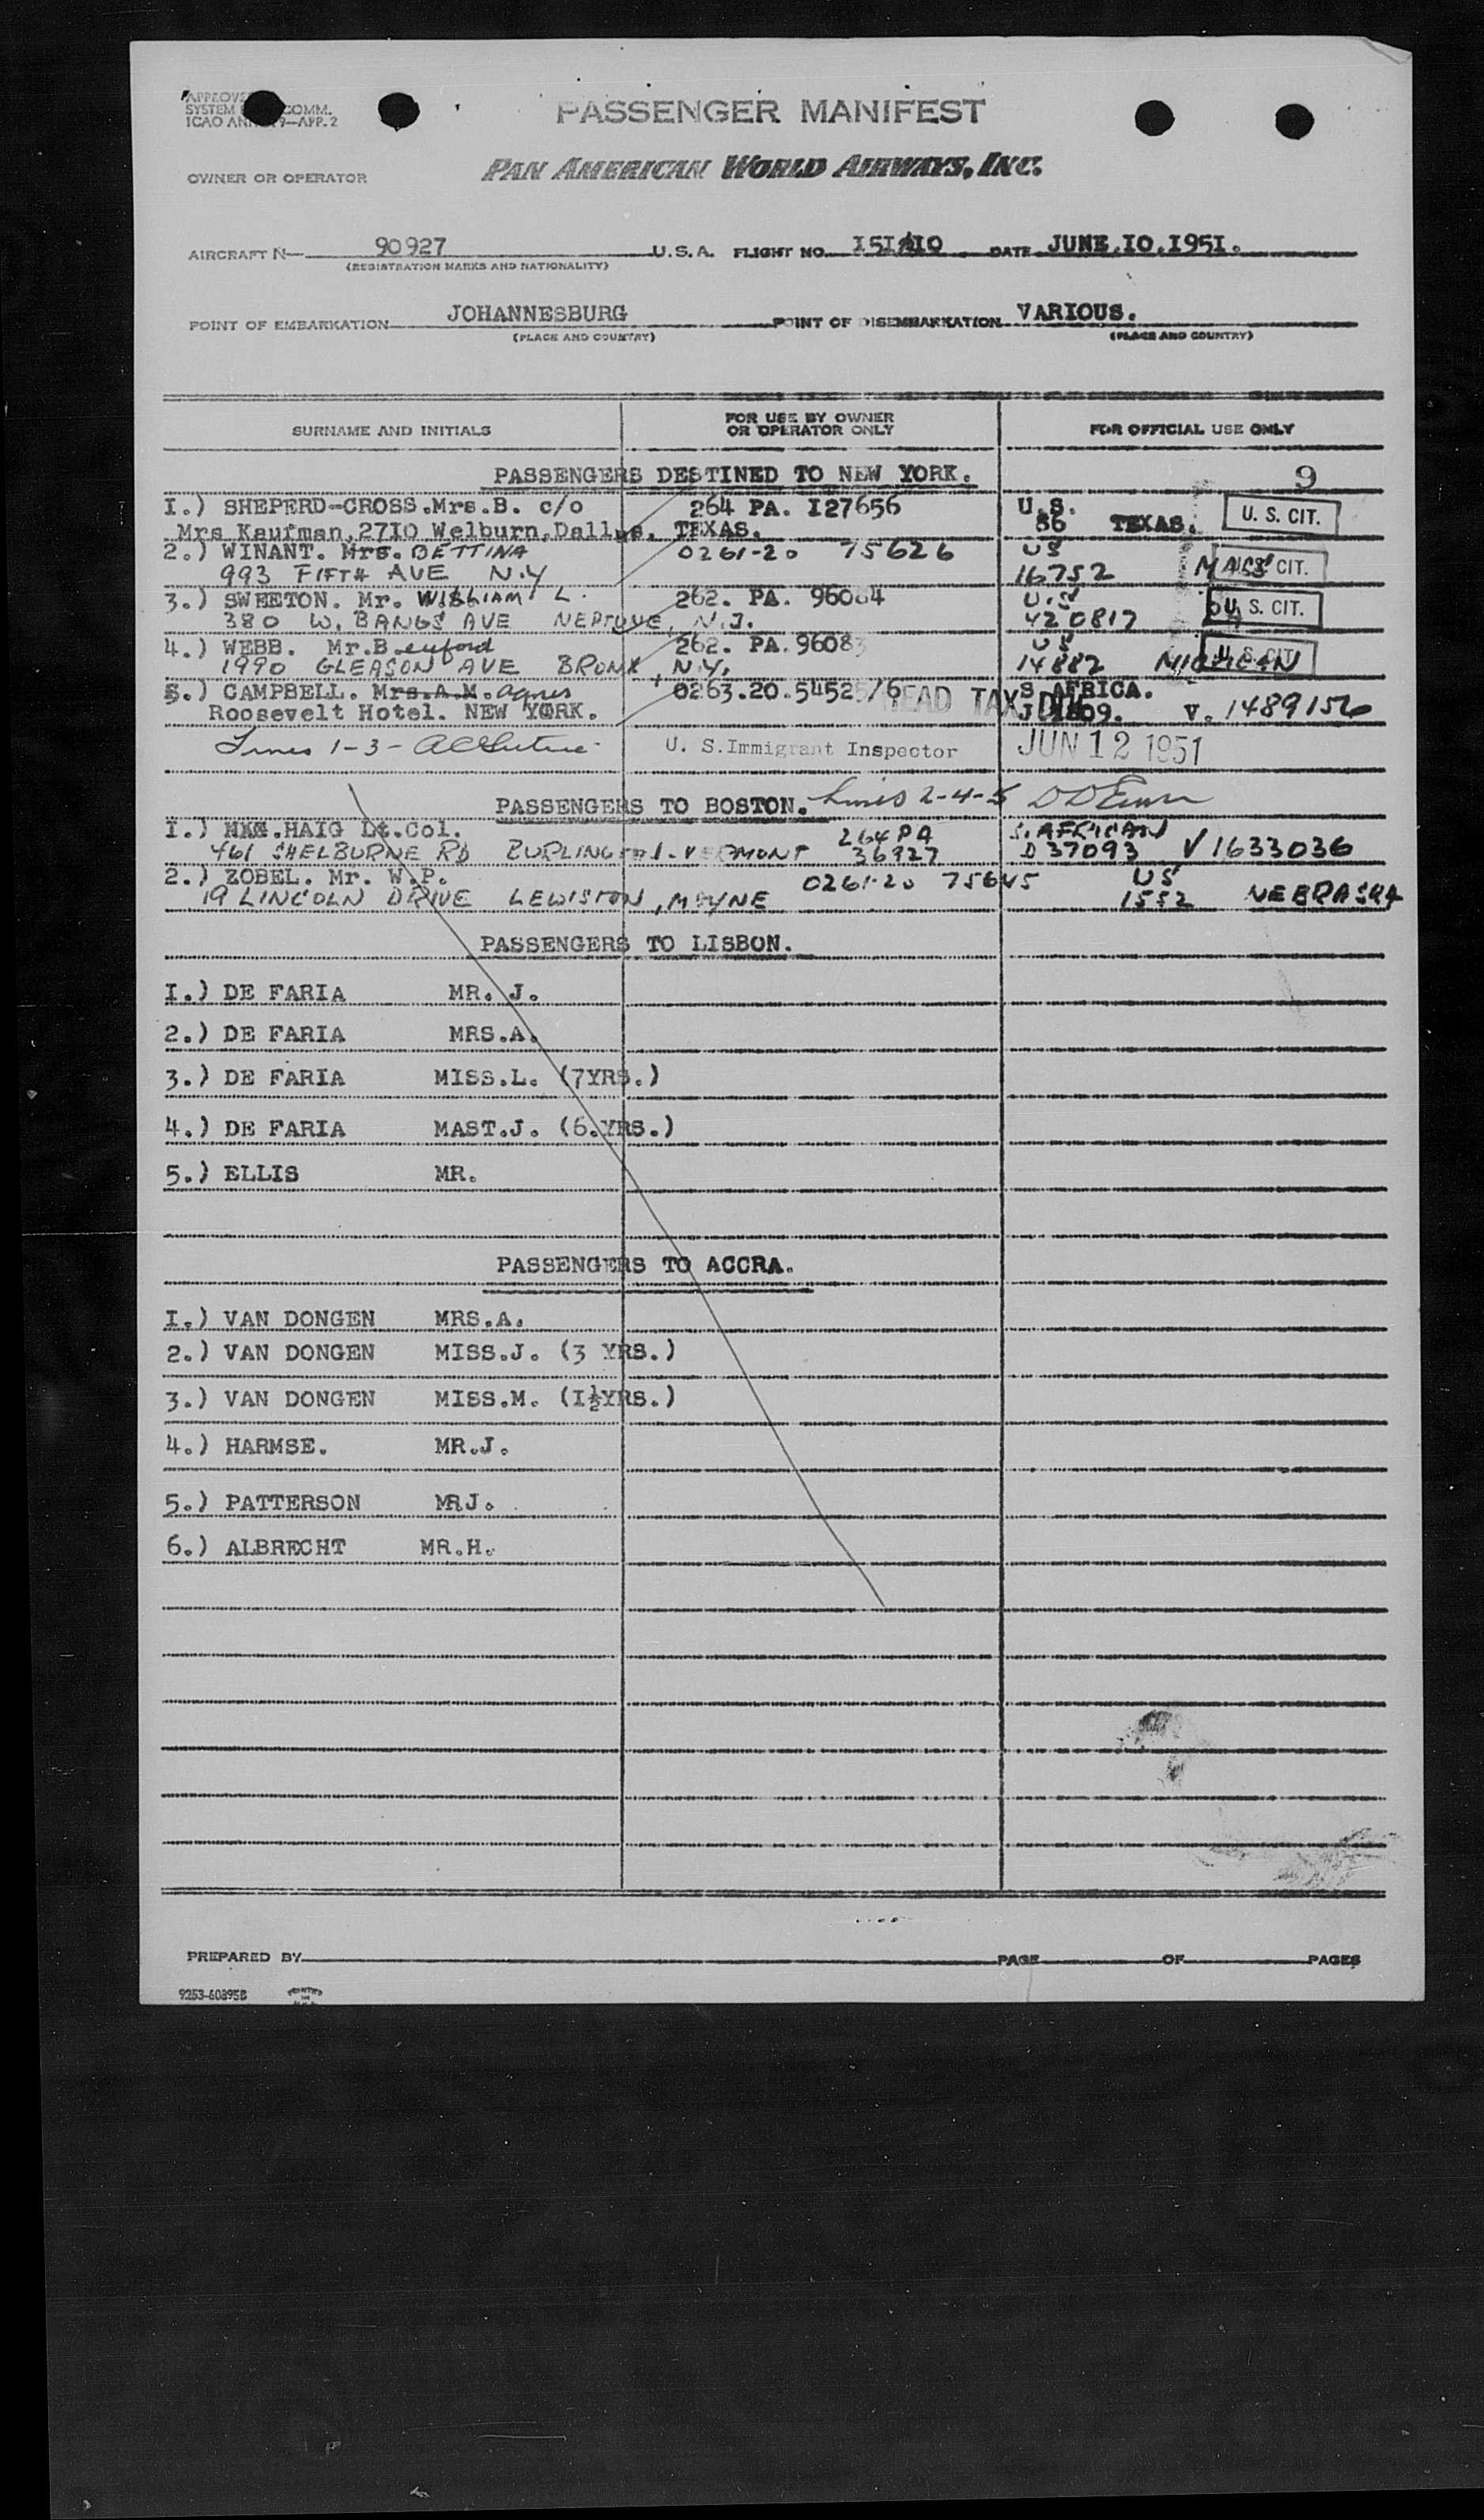 PASSENGER MANIFEST
SYSTEM COMM.
ICAO 9—APP. 2
OWNER OR OPERATOR PAN AMERICAN WORLD AIRWAYS, INC.
AIRCRAFT N— 90927 U.S.A. FLIGHT NO. DATE JUNE.IO.I95I.
(REGISTRATION MARKS AND NATIONALITY)
POINT OF EMBARKATION JOHANNESBURG POINT OF DISEMBARKATION VARIOUS.
(PLACE AND COUNTRY) (PLACE AND COUNTRY)
SURNAME AND INITIALS FOR USE BY OWNER OR OPERATOR ONLY FOR OFFICIAL USE ONLY
PASSENGERS DESTINED TO NEW YORK. 9
I.) SHEPERD-CROSS.Mrs.B. c/o 264 PA. I27656 U.S. U. S. CIT.
Mrs Kaufman,27IO Welburn,Dallas, TEXAS. 86 TEXAS.
2.) WINANT. Mrs. BETTINA 0261-20 75626 US
993 FIFTH AVE N.Y 16752 MASS CIT.
3.) SWEETON. Mr. WILLIAM L. 262. PA. 96084 U.S U. S. CIT.
380 W. BANGS AVE NEPTUNE, N.J. 420817
4.) WEBB. Mr.B.euford 262. PA. 96083 US U.S.CIT
1990 GLEASON AVE BRONX, N.Y. 14882 MICHIGAN
5.) CAMPBELL. Mrs.A.M. Agnes 0263.20.54525/6 HEAD TAX S. AFRICA.
Roosevelt Hotel. NEW YORK. V. 1489156
Lines 1-3- U. S.Immigrant Inspector JUN 12 1951
PASSENGERS TO BOSTON. Lines 2-4-5
I.) HAIG Lt.Col. 264 PA S. AFRICAN
461 SHELBURNE RD BURLINGTON-VERMONT 36927 D 37093 V 1633036
2.) ZOBEL. Mr. W.P. 0261-20 75645 US
19 LINCOLN DRIVE LEWISTON, MAYNE 1552 NEBRASKA
PASSENGERS TO LISBON.
I.) DE FARIA MR. J.
2.) DE FARIA MRS.A.
3.) DE FARIA MISS.L. (7YRS.)
4.) DE FARIA MAST.J. (6.YRS.)
5.) ELLIS MR.
PASSENGERS TO ACCRA.
I.) VAN DONGEN MRS.A.
2.) VAN DONGEN MISS.J. (3 YRS.)
3.) VAN DONGEN MISS.M. (I½YRS.)
4.) HARMSE. MR.J.
5.) PATTERSON MR.J.
6.) ALBRECHT MR.H.
PREPARED BY PAGE OF PAGES
9253-60895B